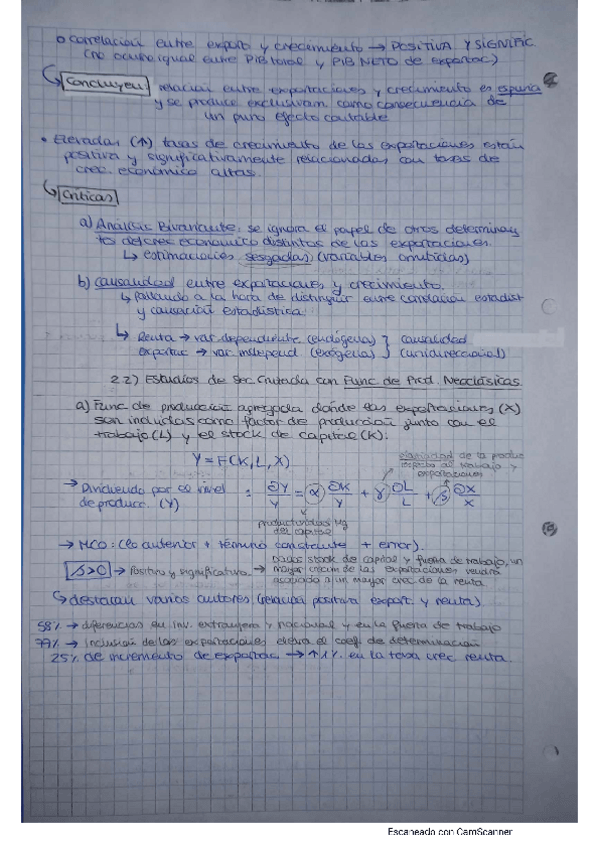 o correlación entre export y crecimiento → POSITIVA Y SIGNIFIC.
(no ocurre igual entre PIB total y PIB NETO de exportac)
↳ Concluyen relación entre exportaciones y crecimiento es espuria
y se produce exclusivam como consecuencia de
un puro efecto contable
• Elevadas (↑) tasas de crecimiento de las exportaciones están
positiva y significativamente relacionadas con tasas de
crec. económico altas.
↳ Críticas
a) Análisis Bivariante: se ignora el papel de otros determinan
tes del crec económico distintos de las exportaciones.
↳ estimaciones sesgadas (variables omitidas)
b) causalidad entre exportaciones y crecimiento.
↳ fallando a la hora de distinguir entre correlación estadíst
y causación estadística.
↳ Renta → var dependiente (endógena) } causalidad
exportac → var independ (exógena) } (unidireccional)
2.2) Estudios de Sec Cruzada con Func de Prod. Neoclásicas.
a) Func de producción agregada donde las exportaciones (X)
son incluidas como factor de producción junto con el
trabajo (L) y el stock de capital (K):
Y = F(K, L, X)
elasticidad de la producc
respecto al trabajo y
exportaciones
→ Dividiendo por el nivel
de producc. (Y) : ∂Y/Y = α ∂K/Y + γ ∂L/L + β ∂X/X
productividad Mg
del capital
→ MCO: (lo anterior + término constante + error).
β>0 → Positivo y significativo → dados stock de capital y fuerza de trabajo, un
mayor crecim de las exportaciones vendrá
asociado a un mayor crec de la renta.
↳ destacan varios autores (relación positiva export. y renta)
58% → diferencias en inv. extranjera y nacional y en la fuerza de trabajo
77% → inclusión de las exportaciones eleva el coef. de determinación
25% de incremento de exportac → ↑ 1% en la tasa crec renta.
Escaneado con CamScanner